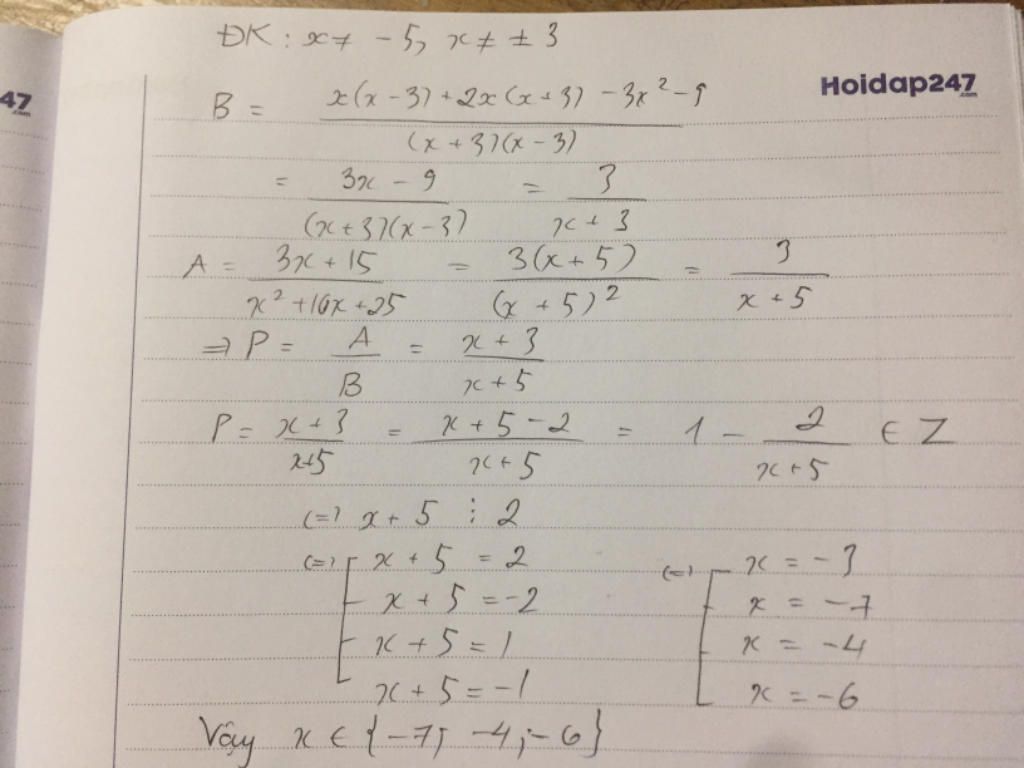 ĐK : x ≠ -5, x ≠ ± 3
47
.com
Hoidap247
.com
B = x(x - 3) + 2x(x + 3) - 3x² - 9 / (x + 3)(x - 3)
= 3x - 9 / (x + 3)(x - 3) = 3 / x + 3
A = 3x + 15 / x² + 10x + 25 = 3(x + 5) / (x + 5)² = 3 / x + 5
=> P = A / B = x + 3 / x + 5
P = x + 3 / x+5 = x + 5 - 2 / x + 5 = 1 - 2 / x + 5 ∈ Z
(=) x + 5 ⋮ 2
(=) [ x + 5 = 2 (=) [ x = -3
x + 5 = -2 x = -7
x + 5 = 1 x = -4
x + 5 = -1 x = -6
Vậy x ∈ {-7; -4; -6}